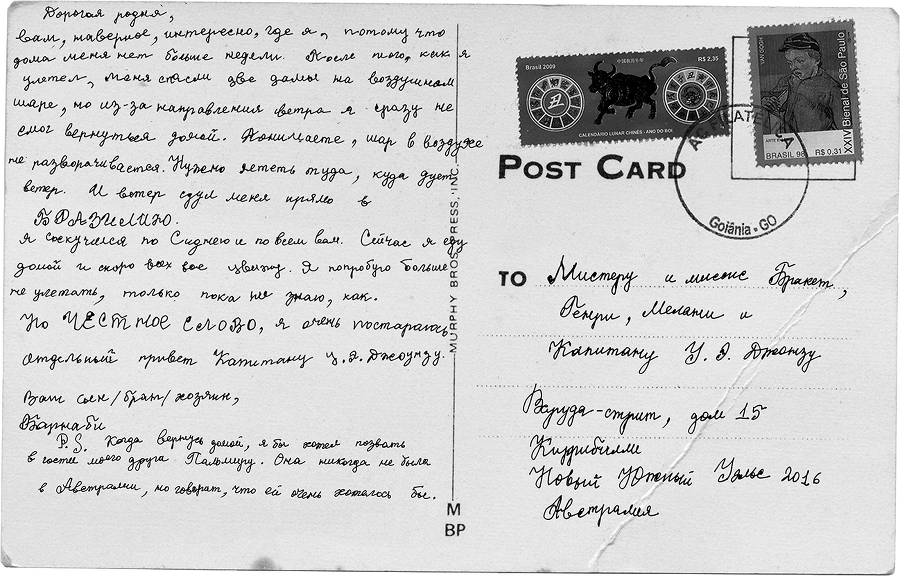 Дорогая родня,
вам, наверное, интересно, где я, потому что
дома меня нет больше недели. После того, как я
улетел, меня спасли две дамы на воздушном
шаре, но из-за направления ветра я сразу не
смог вернуться домой. Понимаете, шар в воздухе
не разворачивается. Нужно лететь туда, куда дует
ветер. И ветер сдул меня прямо в
БРАЗИЛИЮ.
Я соскучился по Сиднею и по всем вам. Сейчас я еду
домой и скоро всех вас увижу. Я попробую больше
не улетать, только пока не знаю, как.
Но ЧЕСТНОЕ СЛОВО, я очень постараюсь
отдельный привет Капитану У.Э.Джонзу.
Ваш сын/брат/хозяин,
Барнаби
P.S. Когда вернусь домой, я бы хотел позвать
в гости моего друга Пальмиру. Она никогда не была
в Австралии, но говорит, что ей очень хотелось бы.
MURPHY BROS. PRESS, INC.
M
BP
Brasil 2009
R$ 2,35
CALENDÁRIO LUNAR CHINÊS - ANO DO BOI
VAN GOGH
XXIV Bienal de São Paulo
BRASIL 98 R$ 0,31
Goiânia - GO
POST CARD
TO
Мистеру и миссис Бракет,
Генри, Мелани и
Капитану У.Э. Джонзу
Вруда-стрит, дом 15
Киррибилли
Новый Южный Уэльс 2016
Австралия